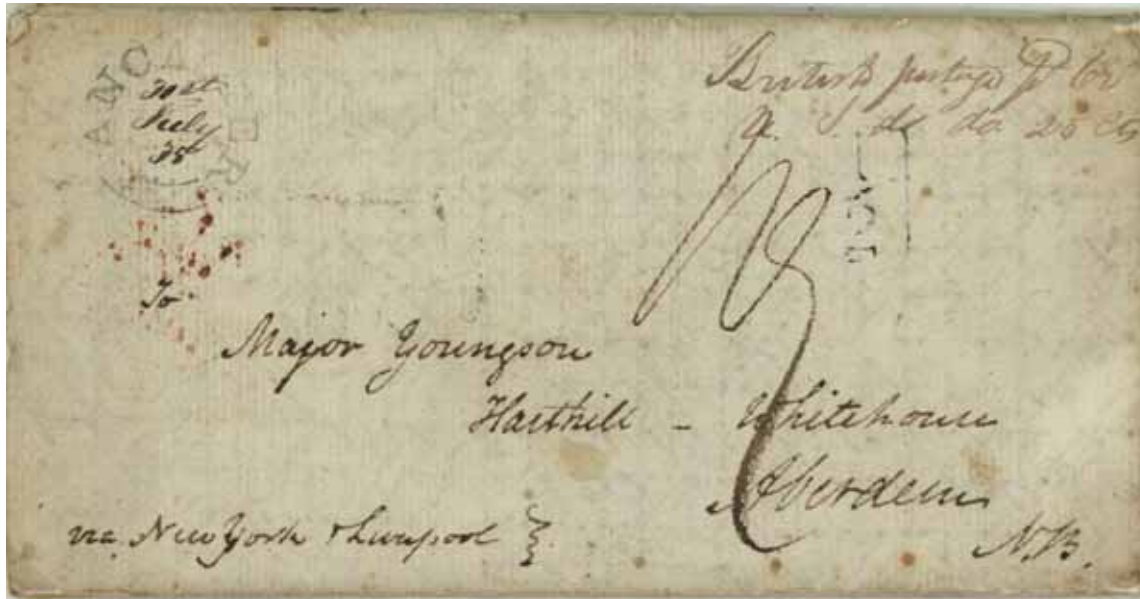 July
British postage
do do 25 Cts
To
Major Youngson
Harthill - Whitehouse
Aberdeen
N.B.
via New York & Liverpool